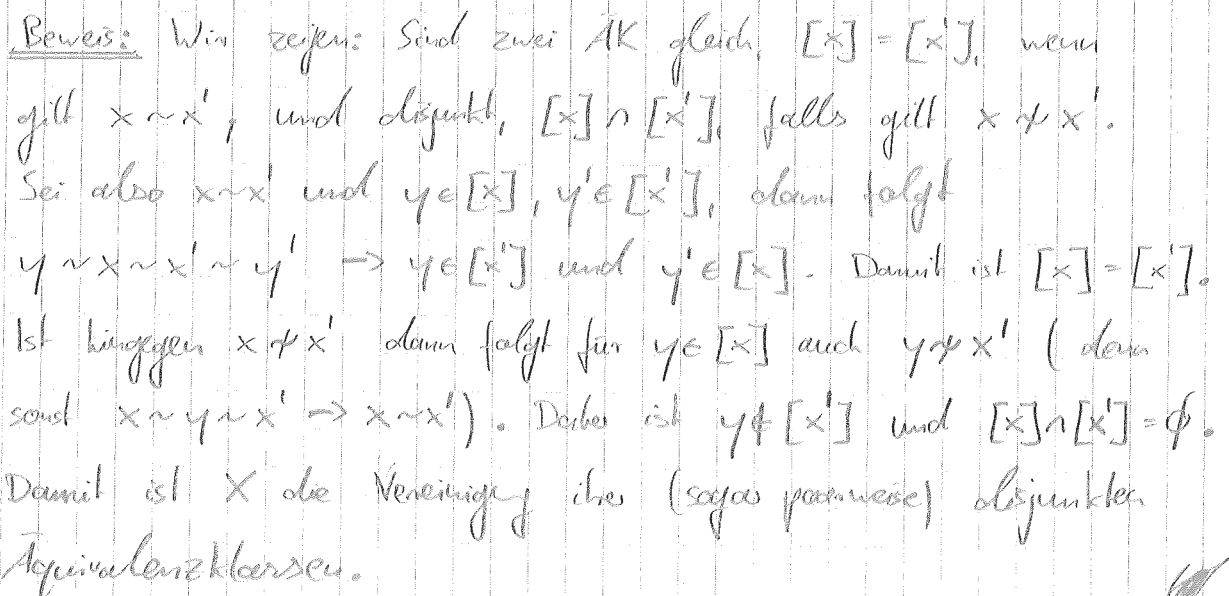 Beweis: Wir zeigen: Sind zwei ÄK gleich, [x] = [x'], wenn
gilt x ~ x', und disjunkt, [x] ∩ [x'], falls gilt x ≁ x'.
Sei also x~x' und y ∈ [x], y' ∈ [x'], dann folgt
y ~ x ~ x' ~ y' → y ∈ [x'] und y' ∈ [x]. Damit ist [x] = [x'].
Ist hingegen x ≁ x' dann folgt für y ∈ [x] auch y ≁ x' (denn
sonst x ~ y ~ x' → x ~ x'). Daher ist y ∉ [x'] und [x] ∩ [x'] = ∅.
Damit ist X die Vereinigung ihrer (sogar paarweise) disjunkten
Äquivalenzklassen.